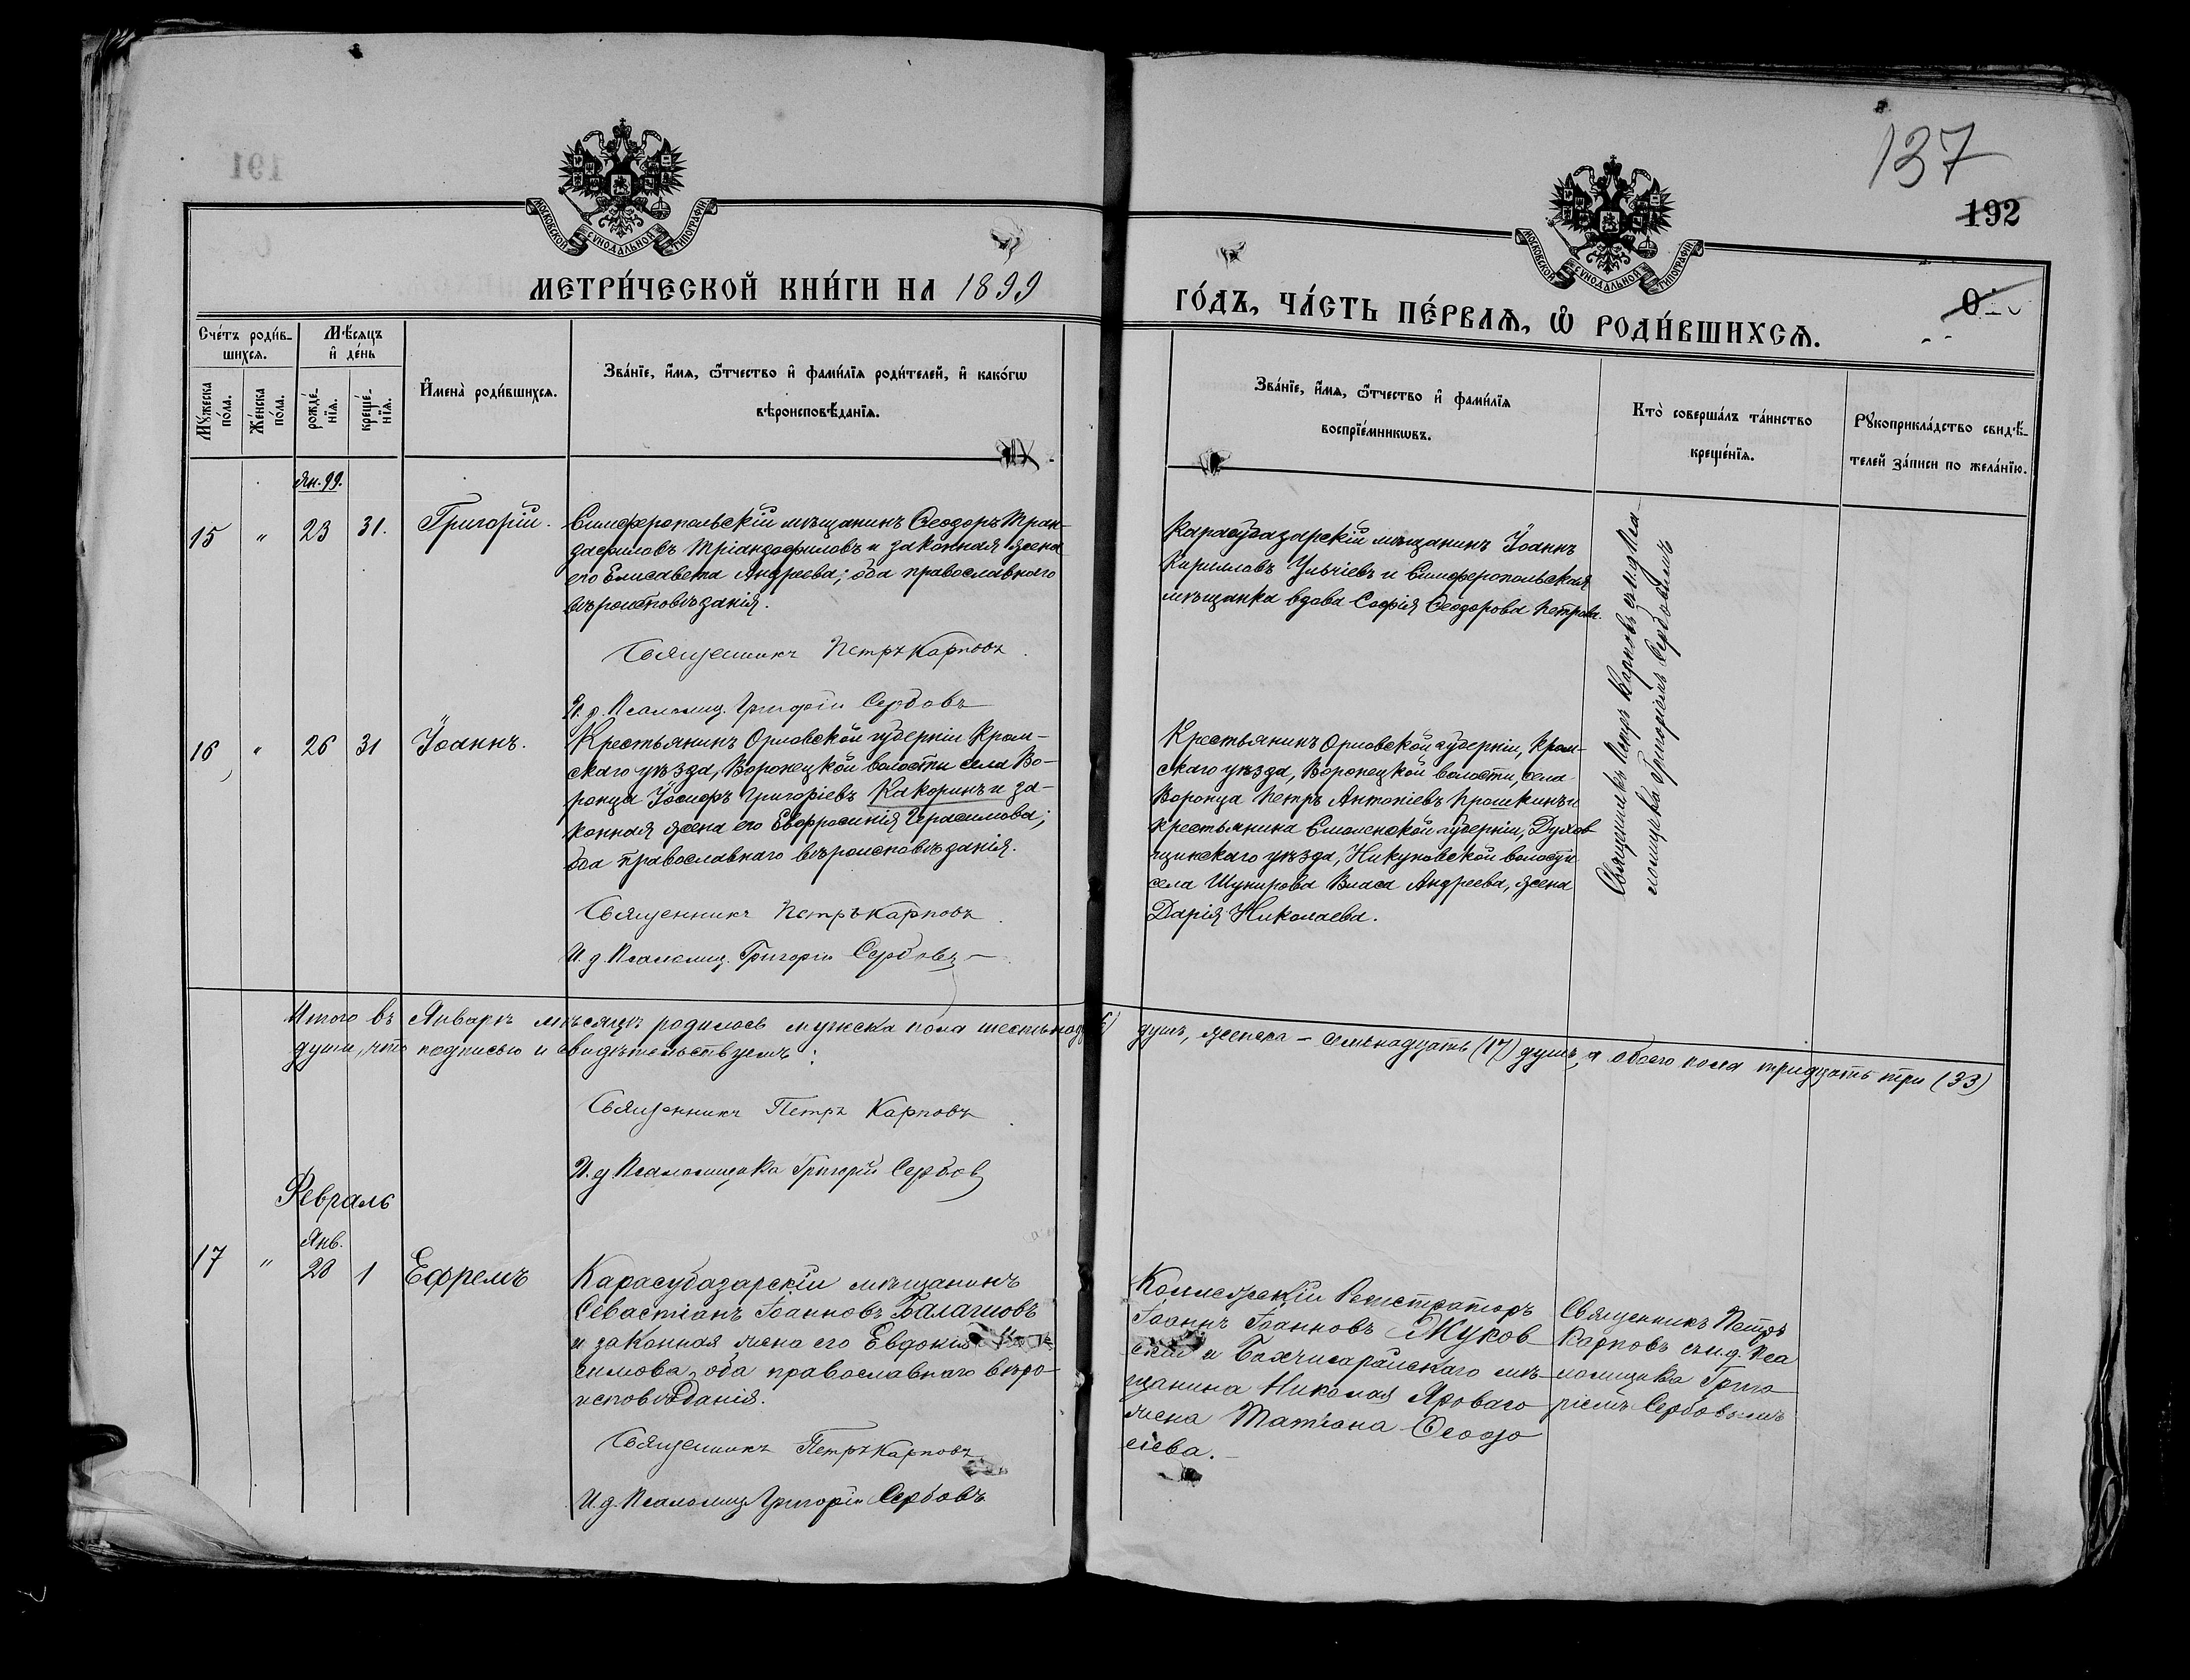 137
192
МОСКОВСКОЙ СѴНОДАЛЬНОЙ ТИПОГРАФІИ
МОСКОВСКОЙ СѴНОДАЛЬНОЙ ТИПОГРАФІИ
МЕТРИ́ЧЕСКОЙ КНИ́ГИ НА 1899
ГО́ДЪ, ЧА́СТЬ ПЕ́РВАѦ, Ѽ РОДИ́ВШИХСѦ.
Сче́тъ роди́в-
шихся.
Мꙋ́жеска
по́ла.
Же́нска
по́ла.
Мѣ́сяцъ
и҆ де́нь
рожде́-
нїя.
креще́-
нїя.
И҆мена̀ роди́вшихся.
Зва́нїе, и҆́мя, ѻ҆́тчество и҆ фами́лїя роди́телей, и҆ како́гѡ
вѣроисповѣ́данїя.
Зва́нїе, и҆́мя, ѻ҆́тчество и҆ фами́лїя
воспрїе́мникѡвъ.
Кто̀ соверша́лъ та́инство
креще́нїя.
Рꙋкоприкла́дство свидѣ́-
телей за́писи по жела́нїю.
Ян. 99.
15 " 23 31. Григорій.
Симферопольскій мѣщанинъ Ѳеодоръ Тран-
дафиловъ Тріандафиловъ и законная жена
его Елисавета Андреева; оба православнаго
вѣроисповѣданія.
Священникъ Петръ Карповъ.
И. д. Псаломщ. Григорій Сербовъ
Карасубазарскій мѣщанинъ Іоаннъ
Кирилловъ Ульчіевъ и Симферопольская
мѣщанка вдова Софія Ѳеодорова Петрова.
Священникъ Петръ Карповъ съ и. д. Пса-
ломщика Григоріемъ Сербовымъ
16 " 26 31 Іоаннъ.
Крестьянинъ Орловской губерніи Кром-
скаго уѣзда, Воронецкой волости села Во-
ронца Іосифъ Григоріевъ Какоринъ и за-
конная жена его Евфросинія Герасимова;
оба православнаго вѣроисповѣданія.
Священникъ Петръ Карповъ.
И. д. Псаломщ. Григорій Сербовъ
Крестьянинъ Орловской губерніи, Кром-
скаго уѣзда, Воронецкой волости, села
Воронца Петръ Антоніевъ Прошкинъ и
крестьянина Смоленской губерніи, Духов
щинскаго уѣзда, волости
села Власа Андреева, жена
Дарія Николаева.
Итого въ Январѣ мѣсяцѣ родилось мужеска пола душъ, женска – семьнадцать (17) душъ, а обоего пола тридцать три (33)
души, что подписью и свидѣтельствуемъ:
Священникъ Петръ Карповъ
И. д. Псаломщика Григорій Сербовъ
Февраль
Янв.
17 " 28 1 Ефремъ
Карасубазарскій мѣщанинъ
Севастіанъ Іоанновъ Балагиовъ
и законная жена его Евдокія
симова, оба православнаго вѣро-
исповѣданія.
Священникъ Петръ Карповъ
И. д. Псаломщ. Григорій Сербовъ
Коллежскій Регистраторъ
Іоаннъ Іоанновъ Жуков
скій и Бахчисарайскаго мѣ-
щанина Николая Яроваго
жена Татіана Ѳеодо
сіева.
Священникъ Петръ
Карповъ съ и. д. Пса
ломщика Григо
ріемъ Сербовымъ